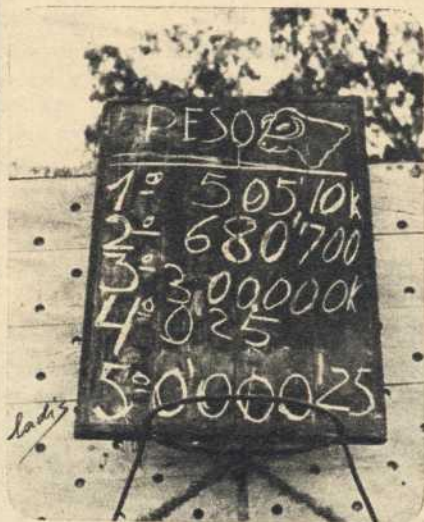 PESO
1º 505'10K
2º 680'700
3º 3,00000K
4º 0'25
5º 0'000'25
ladis